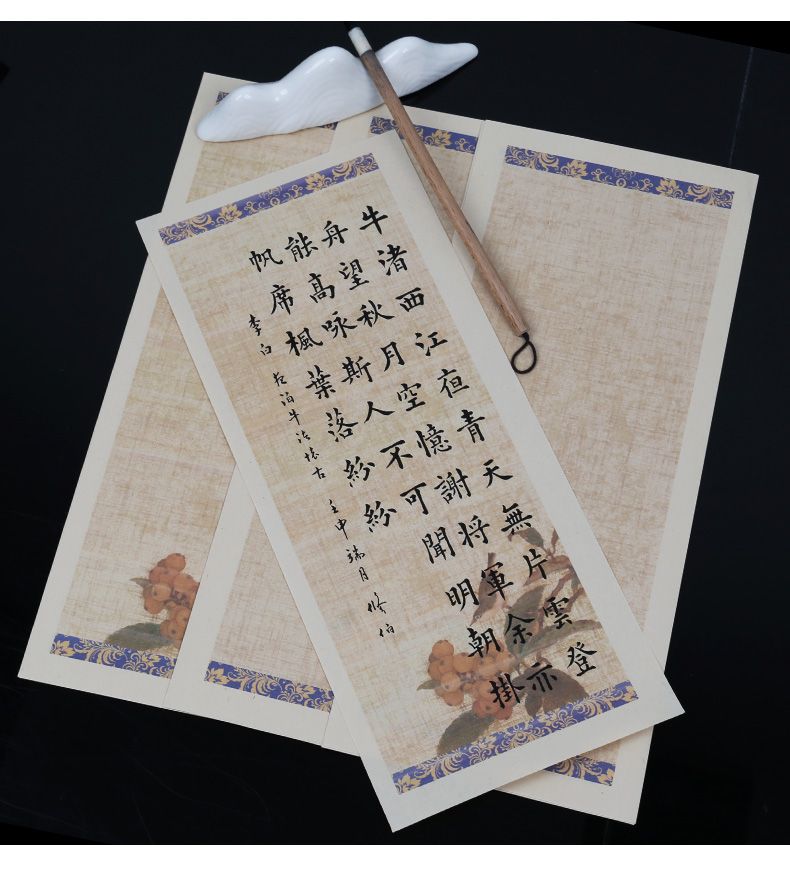 牛渚西江夜青天無片雲登
舟望秋月空憶謝将軍余亦
能高咏斯人不可聞明朝掛
帆席楓葉落紛紛
李白夜泊牛渚懷古 壬申瑞月